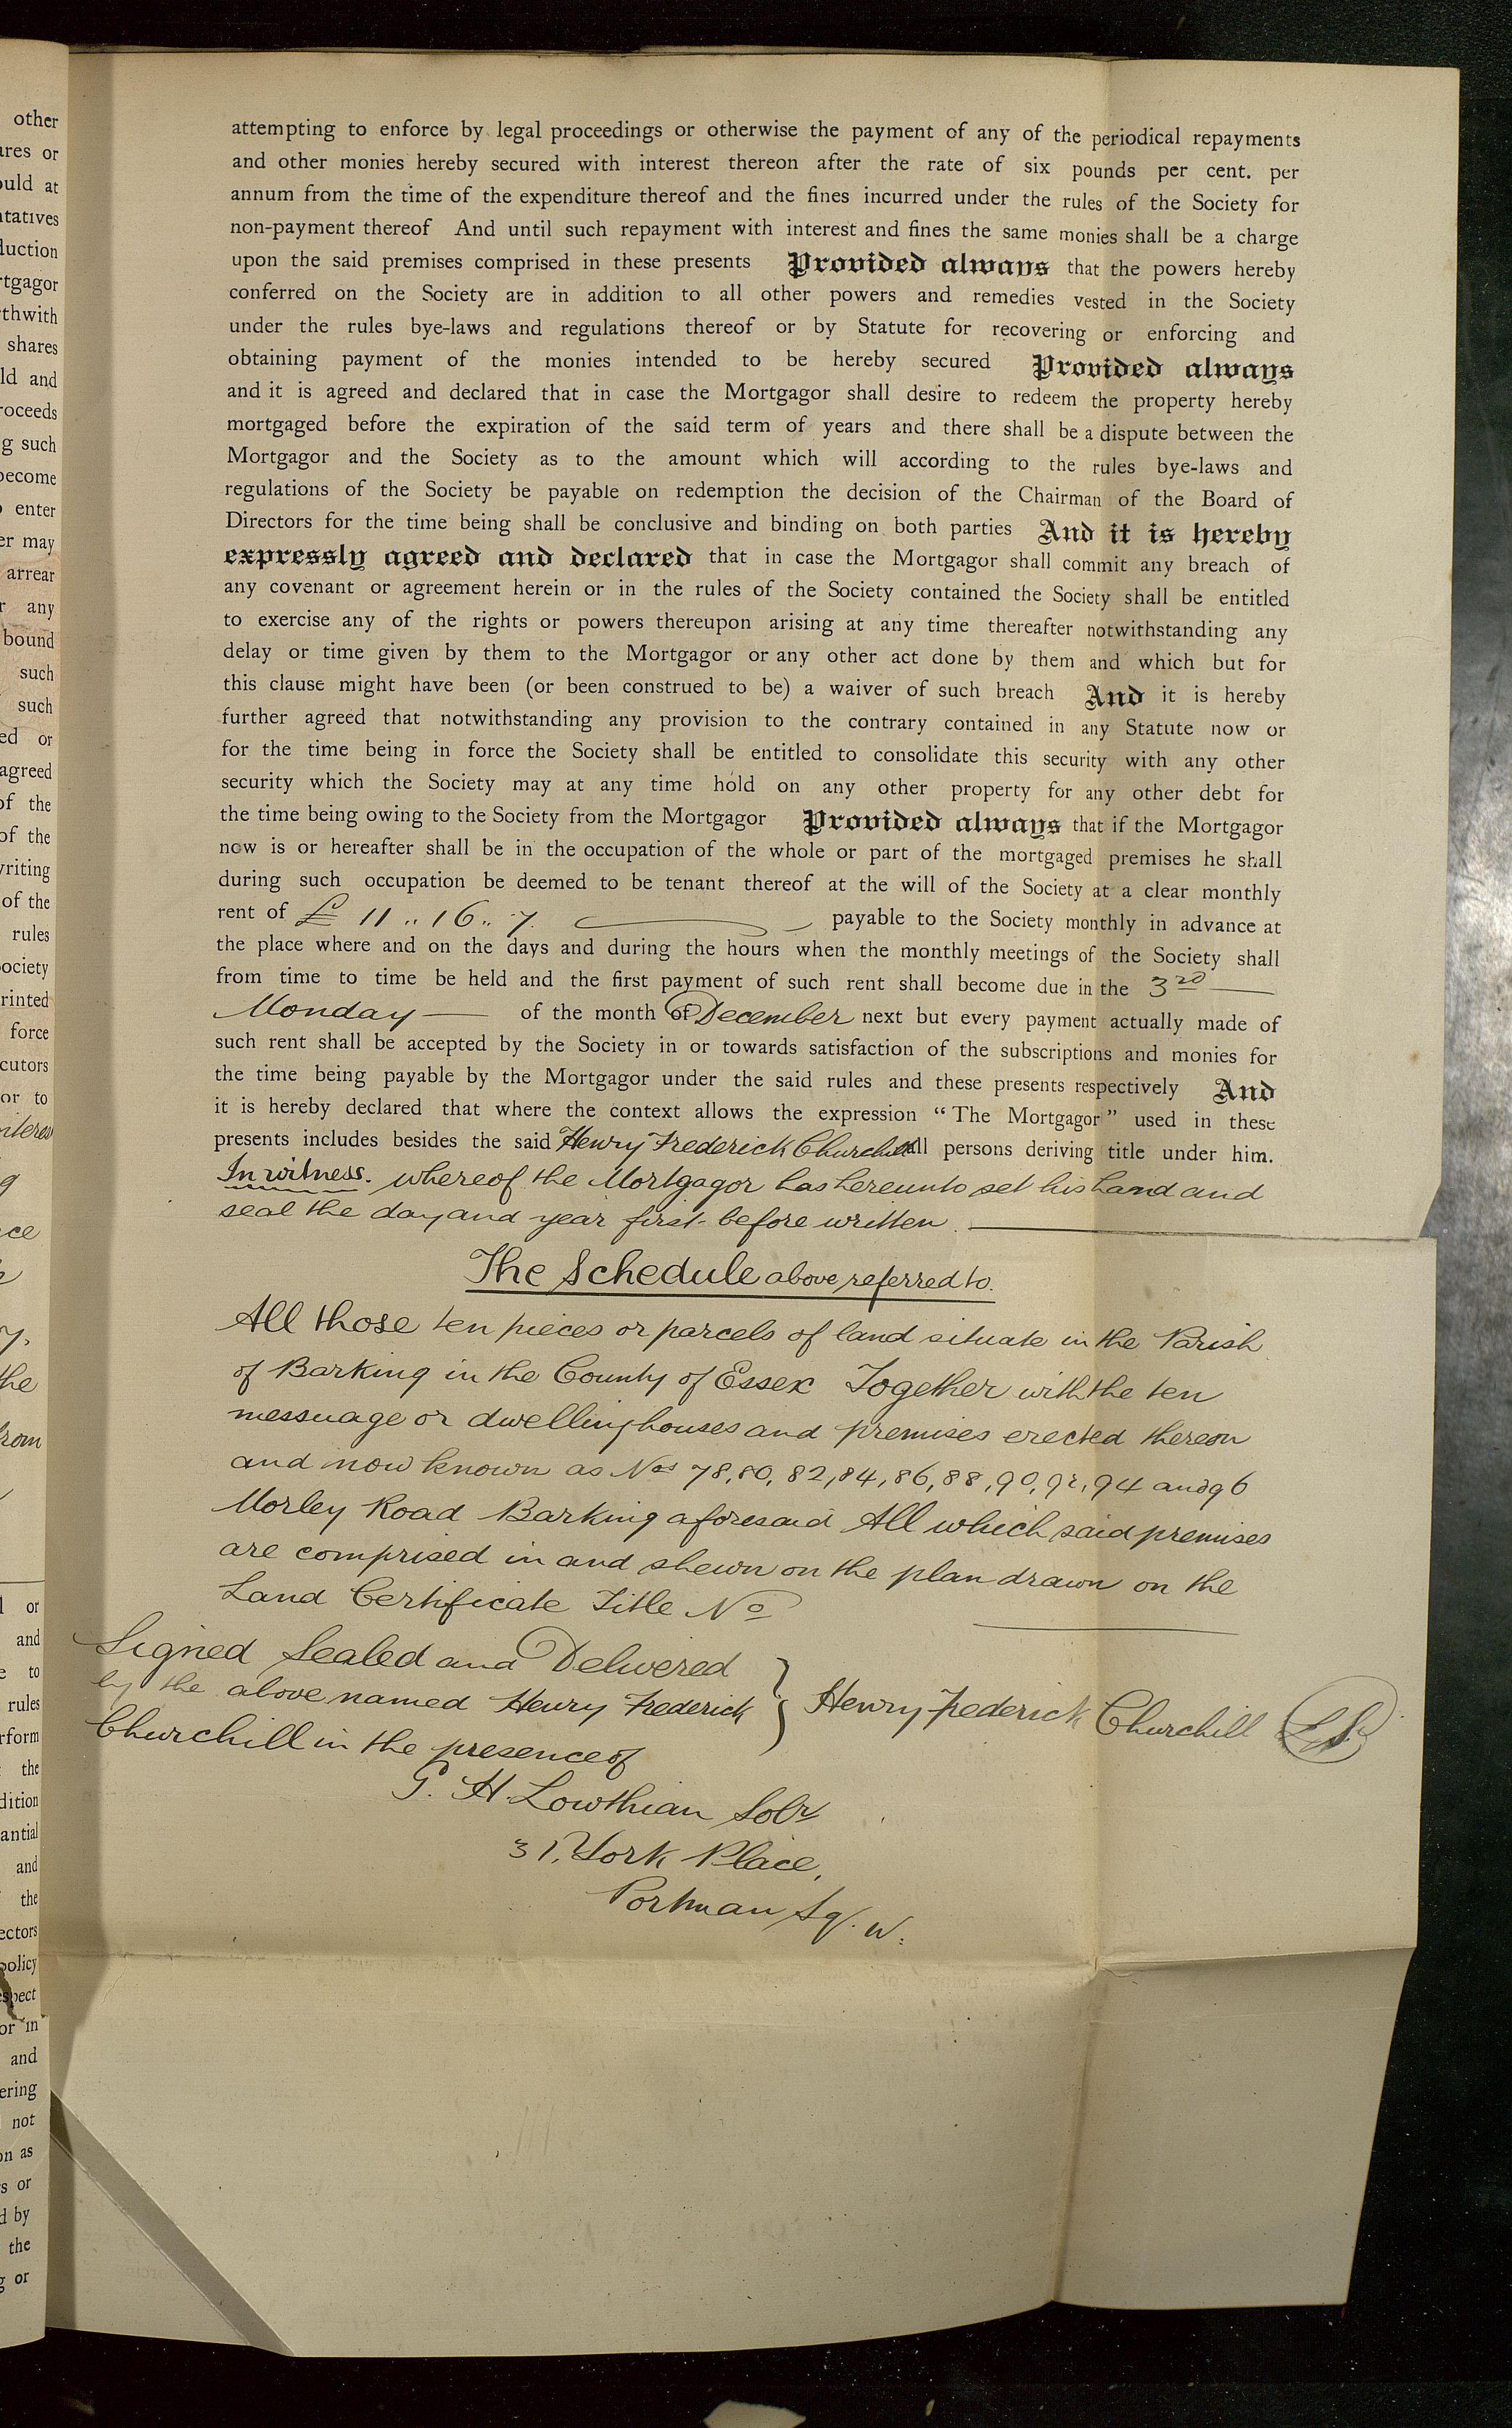 attempting to enforce by legal proceedings or otherwise the payment of any of the periodical repayments
and other monies hereby secured with interest thereon after the rate of six pounds per cent. per
annum from the time of the expenditure thereof and the fines incurred under the rules of the Society for
non-payment thereof And until such repayment with interest and fines the same monies shall be a charge
upon the said premises comprised in these presents Provided always that the powers hereby
conferred on the Society are in addition to all other powers and remedies vested in the Society
under the rules bye-laws and regulations thereof or by Statute for recovering or enforcing and
obtaining payment of the monies intended to be hereby secured Provided always
and it is agreed and declared that in case the Mortgagor shall desire to redeem the property hereby
mortgaged before the expiration of the said term of years and there shall be a dispute between the
Mortgagor and the Society as to the amount which will according to the rules bye-laws and
regulations of the Society be payable on redemption the decision of the Chairman of the Board of
Directors for the time being shall be conclusive and binding on both parties And it is hereby
expressly agreed and declared that in case the Mortgagor shall commit any breach of
any covenant or agreement herein or in the rules of the Society contained the Society shall be entitled
to exercise any of the rights or powers thereupon arising at any time thereafter notwithstanding any
delay or time given by them to the Mortgagor or any other act done by them and which but for
this clause might have been (or been construed to be) a waiver of such breach And it is hereby
further agreed that notwithstanding any provision to the contrary contained in any Statute now or
for the time being in force the Society shall be entitled to consolidate this security with any other
security which the Society may at any time hold on any other property for any other debt for
the time being owing to the Society from the Mortgagor Provided always that if the Mortgagor
now is or hereafter shall be in the occupation of the whole or part of the mortgaged premises he shall
during such occupation be deemed to be tenant thereof at the will of the Society at a clear monthly
rent of £ 11 .. 16 .. 7. payable to the Society monthly in advance at
the place where and on the days and during the hours when the monthly meetings of the Society shall
from time to time be held and the first payment of such rent shall become due in the 3rd
Monday of the month of December next but every payment actually made of
such rent shall be accepted by the Society in or towards satisfaction of the subscriptions and monies for
the time being payable by the Mortgagor under the said rules and these presents respectively And
it is hereby declared that where the context allows the expression "The Mortgagor" used in these
presents includes besides the said Henry Frederick Churchill all persons deriving title under him.
In witness. whereof the Mortgagor has hereunto set his hand and
seal the day and year first before written.
The Schedule above referred to.
All those ten pieces or parcels of land situate in the Parish
of Barking in the County of Essex Together with the ten
messuage or dwellinghouses and premises erected thereon
and now known as Nos 78, 80, 82, 84, 86, 88, 90, 92, 94 and 96
Morley Road Barking aforesaid All which said premises
are comprised in and shewn on the plan drawn on the
Land Certificate Title No
Signed Sealed and Delivered
by the above named Henry Frederick
Churchill in the presence of
Henry Frederick Churchill L.S.
G. H. Lowthian Solr
31, York Place,
Portman Sq. W.
other
ares or
ould at
tatives
duction
rtgagor
thwith
shares
ld and
roceeds
g such
become
enter
er may
arrear
r any
bound
such
such
ed or
agreed
of the
of the
writing
of the
rules
ociety
rinted
force
cutors
or to
nteres
ce
the
rom
l or
and
e to
rules
rform
the
dition
antial
and
the
ectors
policy
spect
or in
and
ering
not
on as
s or
d by
the
g or